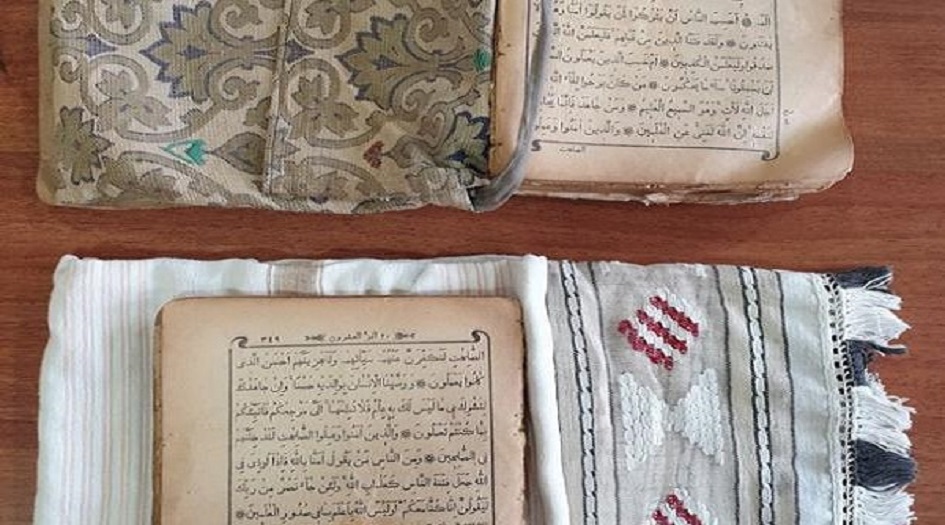 الم ۝ احسب الناس ان يتركوا ان يقولوا امنا
يفتنون ۝ ولقد فتنا الذين من قبلهم فليعلمن الله
صدقوا وليعلمن الكذبين ۝ ام حسب الذين يعملون
ان يسبقونا ساء ما يحكمون ۝ من كان يرجوا لقاء الله
اجل الله لات وهو السميع العليم ۝ ومن جاهد فانما
لنفسه ان الله لغنى عن العلمين ۝ والذين امنوا وعملوا
الصلحت
٢٠ الجزء العشرون ٣٤٩
الصلحت لنكفرن عنهم سياتهم ولنجزينهم احسن الذى
كانوا يعملون ۝ ووصينا الانسان بوالديه حسنا وان جاهدك
لتشرك بى ما ليس لك به علم فلا تطعهما الى مرجعكم فانبئكم
بما كنتم تعملون ۝ والذين امنوا وعملوا الصلحت لندخلنهم
فى الصلحين ۝ ومن الناس من يقول امنا بالله فاذا اوذى فى
الله جعل فتنة الناس كعذاب الله ولئن جاء نصر من ربك
ليقولن انا كنا معكم اوليس الله باعلم بما فى صدور العلمين ۝